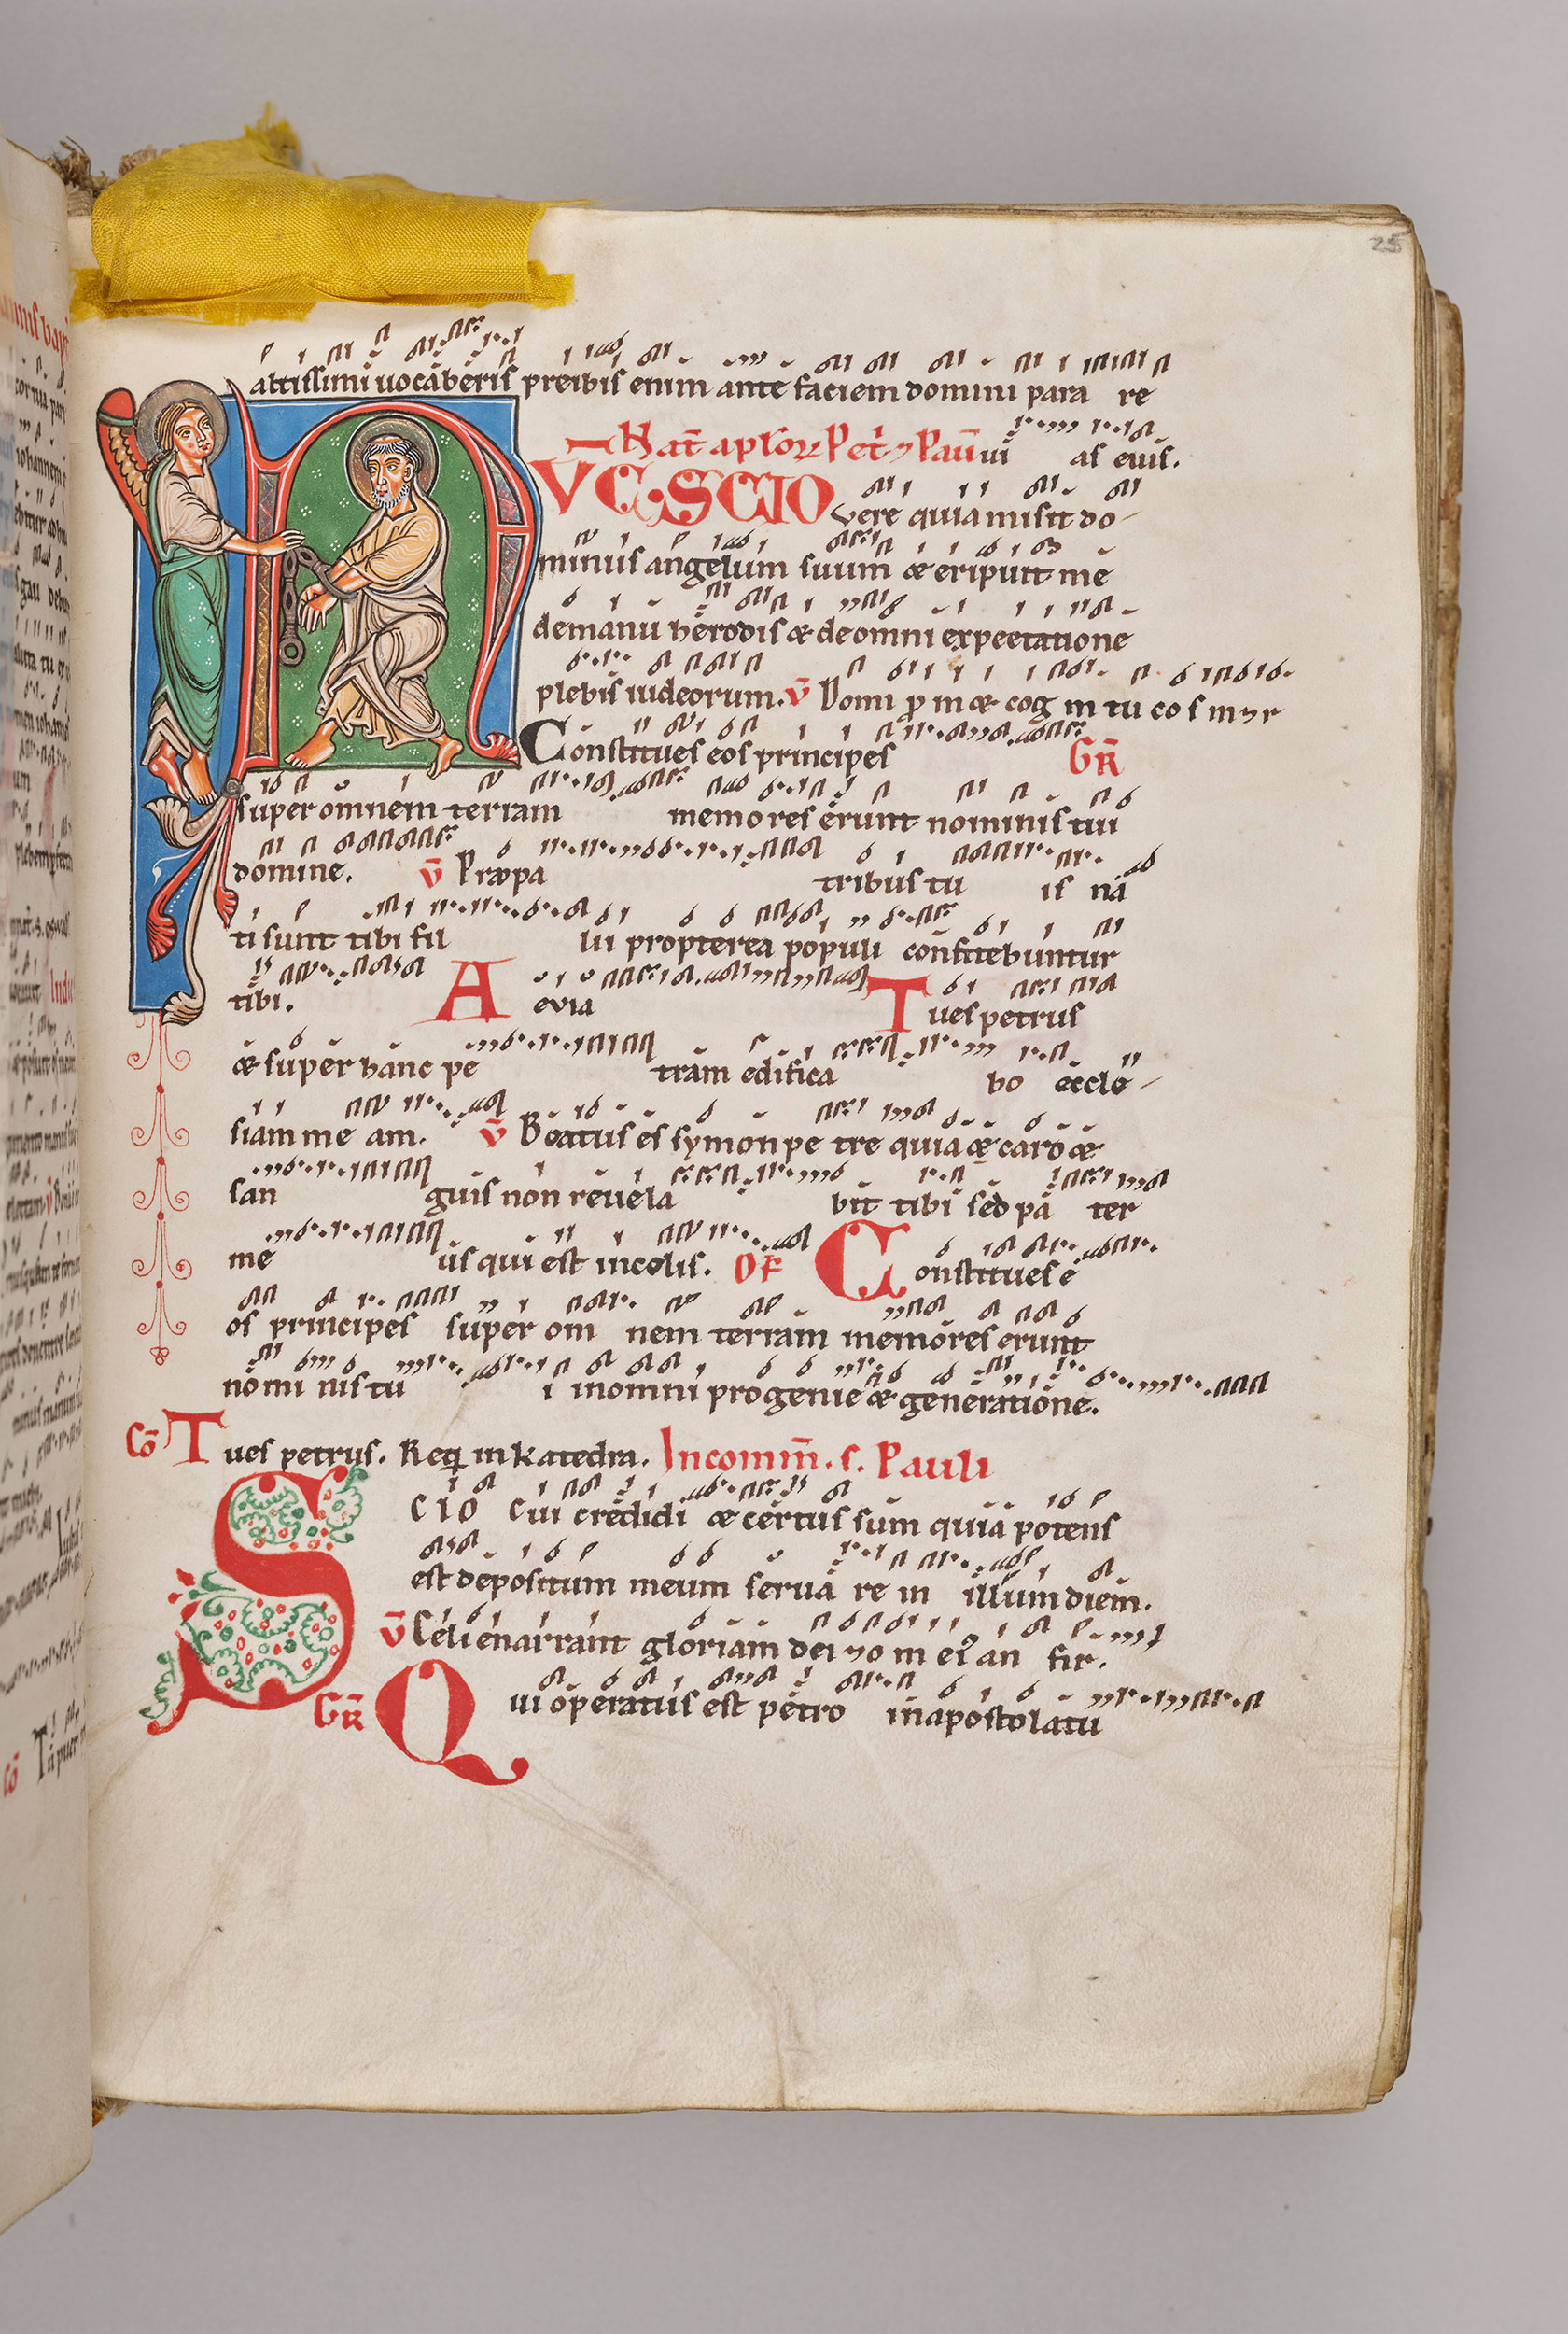 25
altissimi uocaberis preibis enim ante faciem domini para re
Nat̄ aplōꝝ Pet⁊ Paul ui as eius.
NVC·SCIO vere quia misit do-
minus angelum suum & eripuit me
de manu herodis & de omni expectatione
plebis iudeorum. V̄ Domi ꝓ m & cog m tu co s m ⁊ r
Constitues eos principes GR̄
super omnem terram memores erunt nominis tui
domine. V̄ Pro pa tribus tu is na
ti sunt tibi fil lii propterea populi confitebuntur
tibi. A evia Tu es petrus
& super hanc pe tram edifica bo eccle-
siam me am. V̄ Beatus es symon pe tre quia & caro &
san guis non reuela bit tibi sed pa ter
me us qui est in celis. OF Constitues e
os principes super om nem terram memores erunt
nomi nis tu i in omni progenie & generatione.
Cō Tu es petrus. Req in katedra. In com̄m̄. s. Pauli
SCIO cui credidi & certus sum quia potens
est depositum meum serua re in illum diem.
V̄ Celi enarrant gloriam dei ⁊ o m ei an fir.
GR̄ Qui operatus est petro in apostolatu